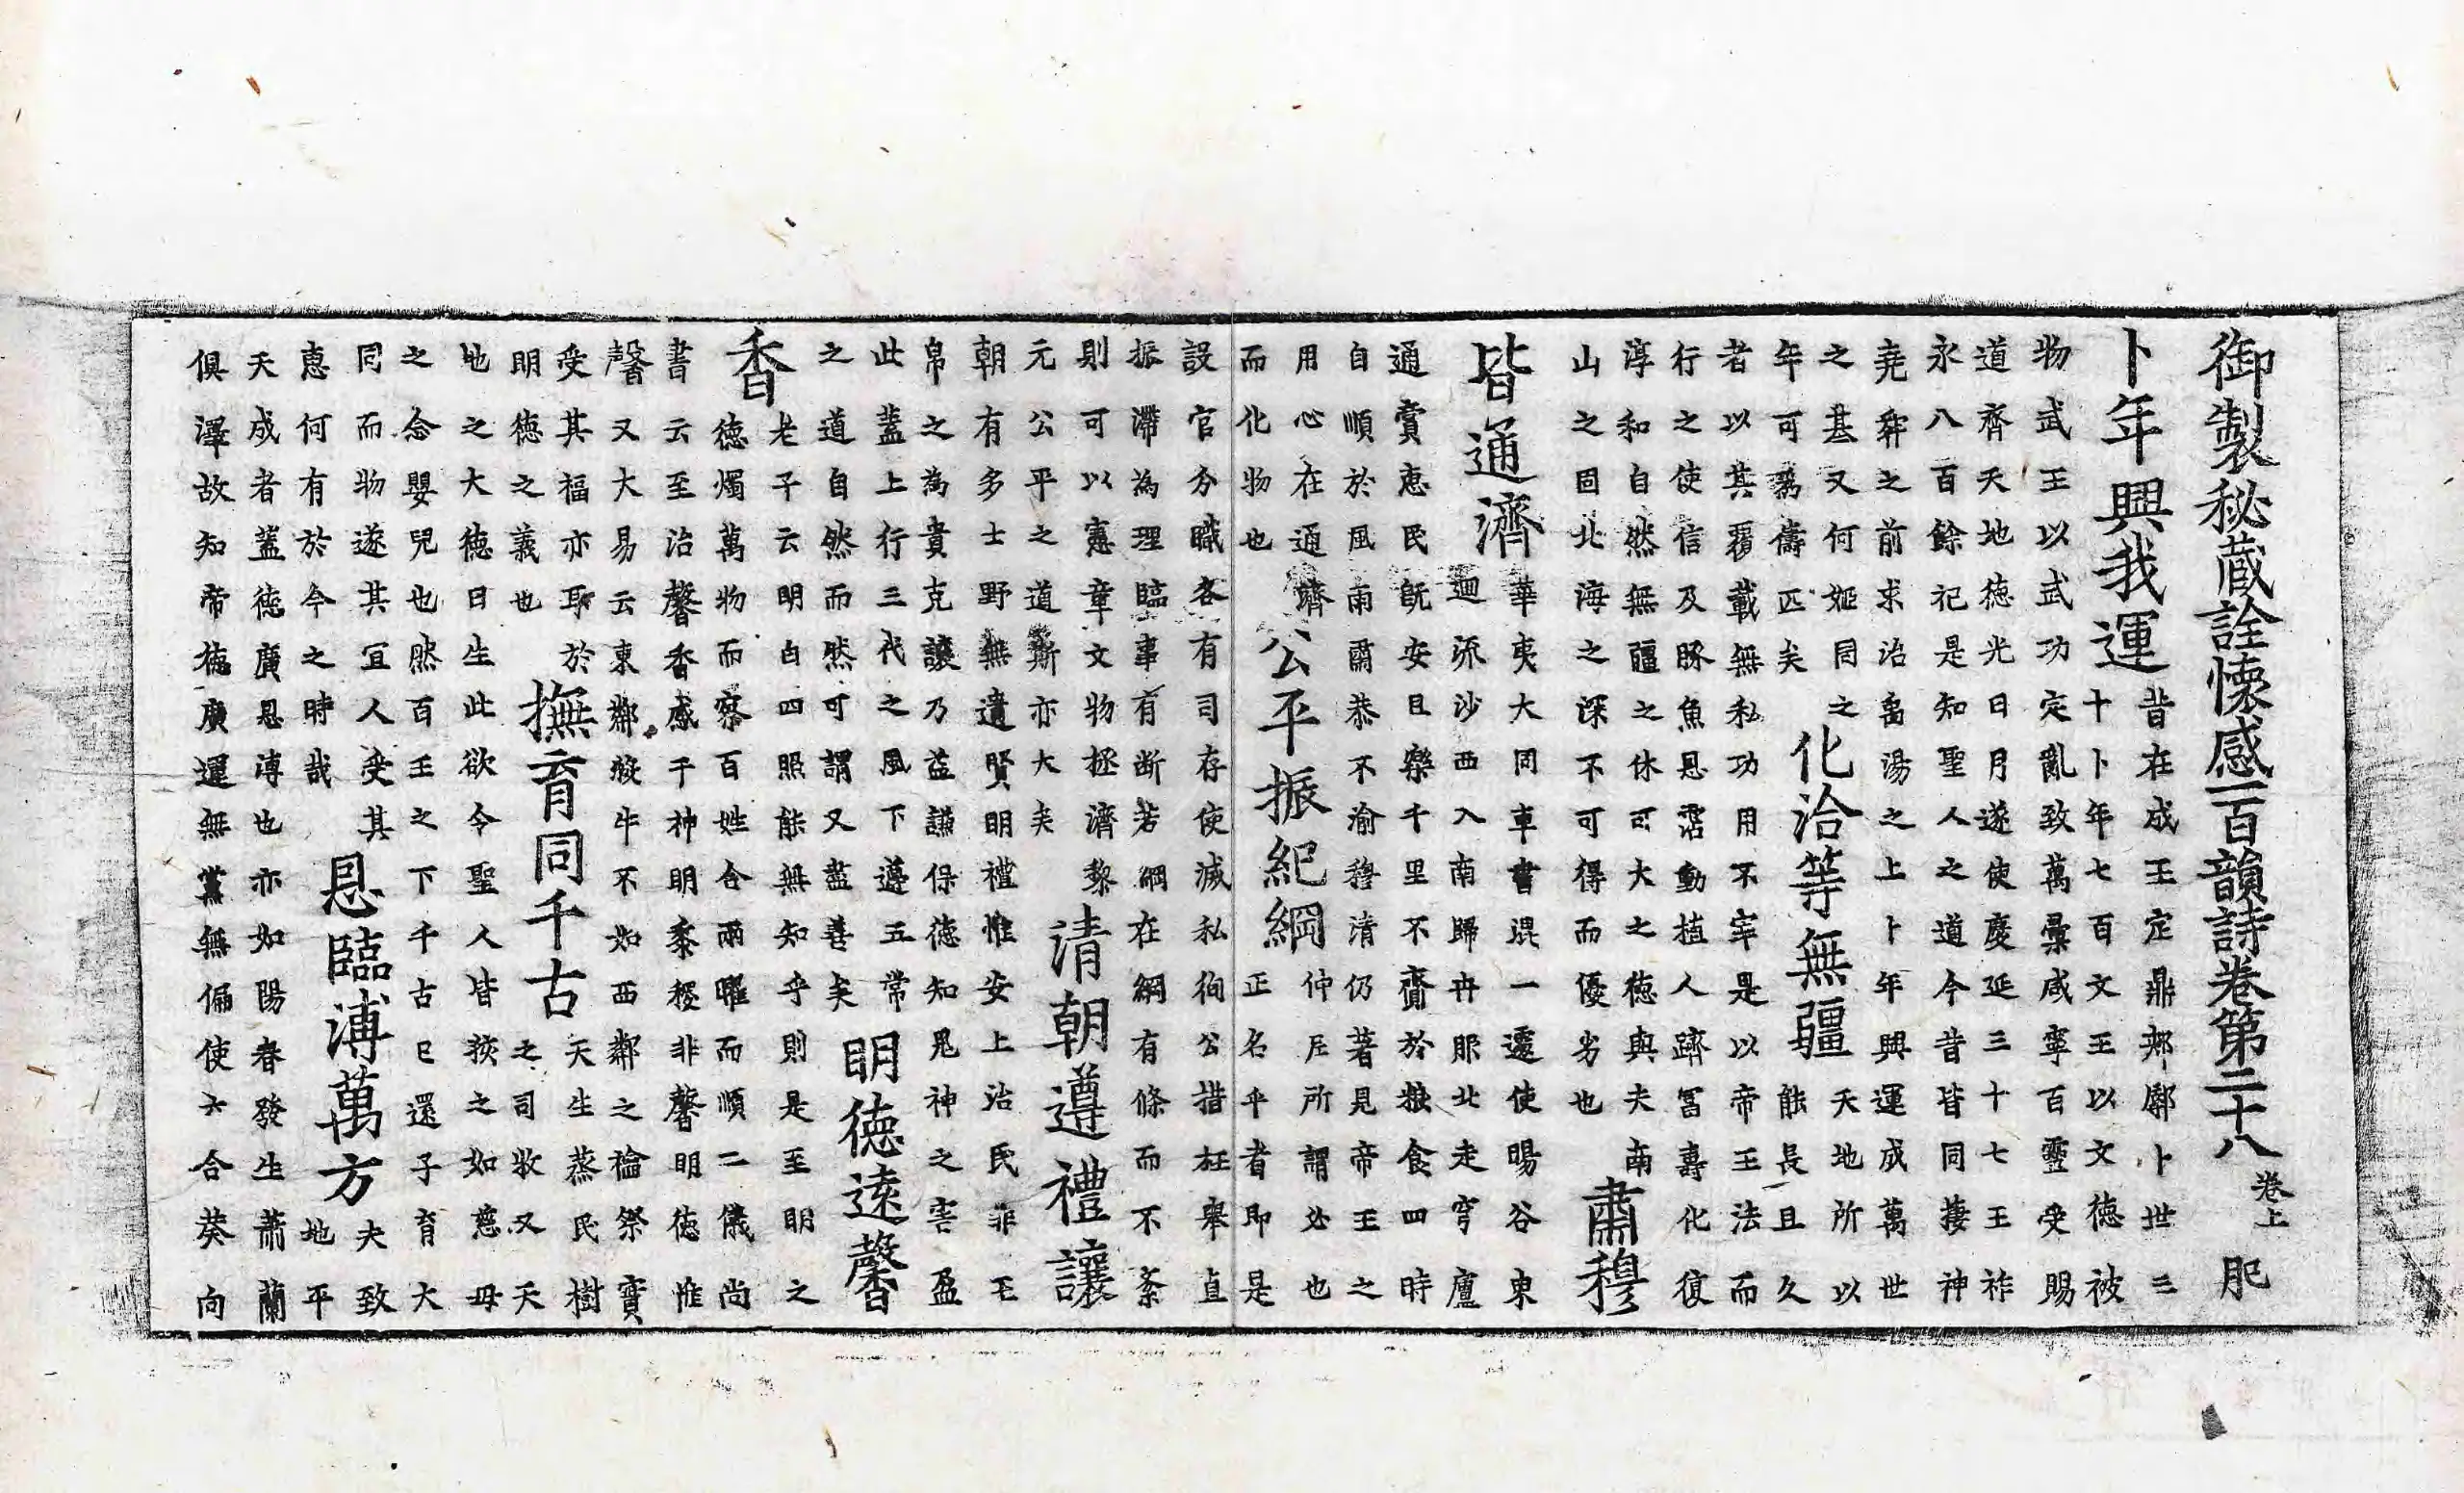 御製秘蔵詮懷感一百韻詩卷第二十八 卷上 肥
卜年興我運
昔在成王定鼎郟鄏卜世三
十卜年七百文王以文德被
物武王以武功定亂致萬彙咸寧百靈受賜
道齊天地德光日月遂使慶延三十七王祚
永八百餘祀是知聖人之道今昔皆同萋神
堯舜之前求治禹湯之上卜年興運成萬世
之基又何姬同之
年可為儔匹矣
化洽等無疆
天地所以
能長且久
者以其覆載無私功用不宰是以帝王法而
行之使信及豚魚恩霑動植人躋冨壽化復
淳和自然無疆之休可大之德與夫南
山之固北海之深不可得而優劣也
肅穆
皆通濟
華夷大同車書混一遝使暘谷東
迴流沙西入南歸冉駹北走穹廬
通賞恵民既安且樂千里不齎於粮食四時
自順於風雨肅恭不渝穆清仍著見帝王之
用心在通濟
而化物也
公平振紀綱
仲尼所謂必也
正名乎者即是
設官分職各有司存使滅私徇公措枉舉直
振滯為理臨事有断若綱在綱有條而不紊
則可以憲章文物拯濟黎
元公平之道斯亦大矣
清朝遵禮讓
朝有多士野無遺賢明禮惟安上治民非玉
帛之為貴克讓乃益謙保德知鬼神之害盈
此蓋上行三代之風下遵五常
之道自然而然可謂又盡善矣
明德遠馨
香
老子云明白四照能無知乎則是至明之
德燭萬物而察百姓合兩曜而順二儀尚
書云至治馨香感于神明黍稷非馨明德惟
馨又大易云東鄰殺牛不如西鄰之禴祭實
受其福亦取於
明德之義也
撫育同千古
天生蒸民樹
之司牧又天
地之大德曰生此欲令聖人皆挾之如慈母
之念嬰兒也然百王之下千古已還子育大
同而物遂其宜人受其
恵何有於今之時哉
恩臨溥萬方
夫致
地平
天成者蓋德廣恩溥也亦如陽春發生蕭蘭
俱澤故知帝德廣運無黨無偏使六合葵向